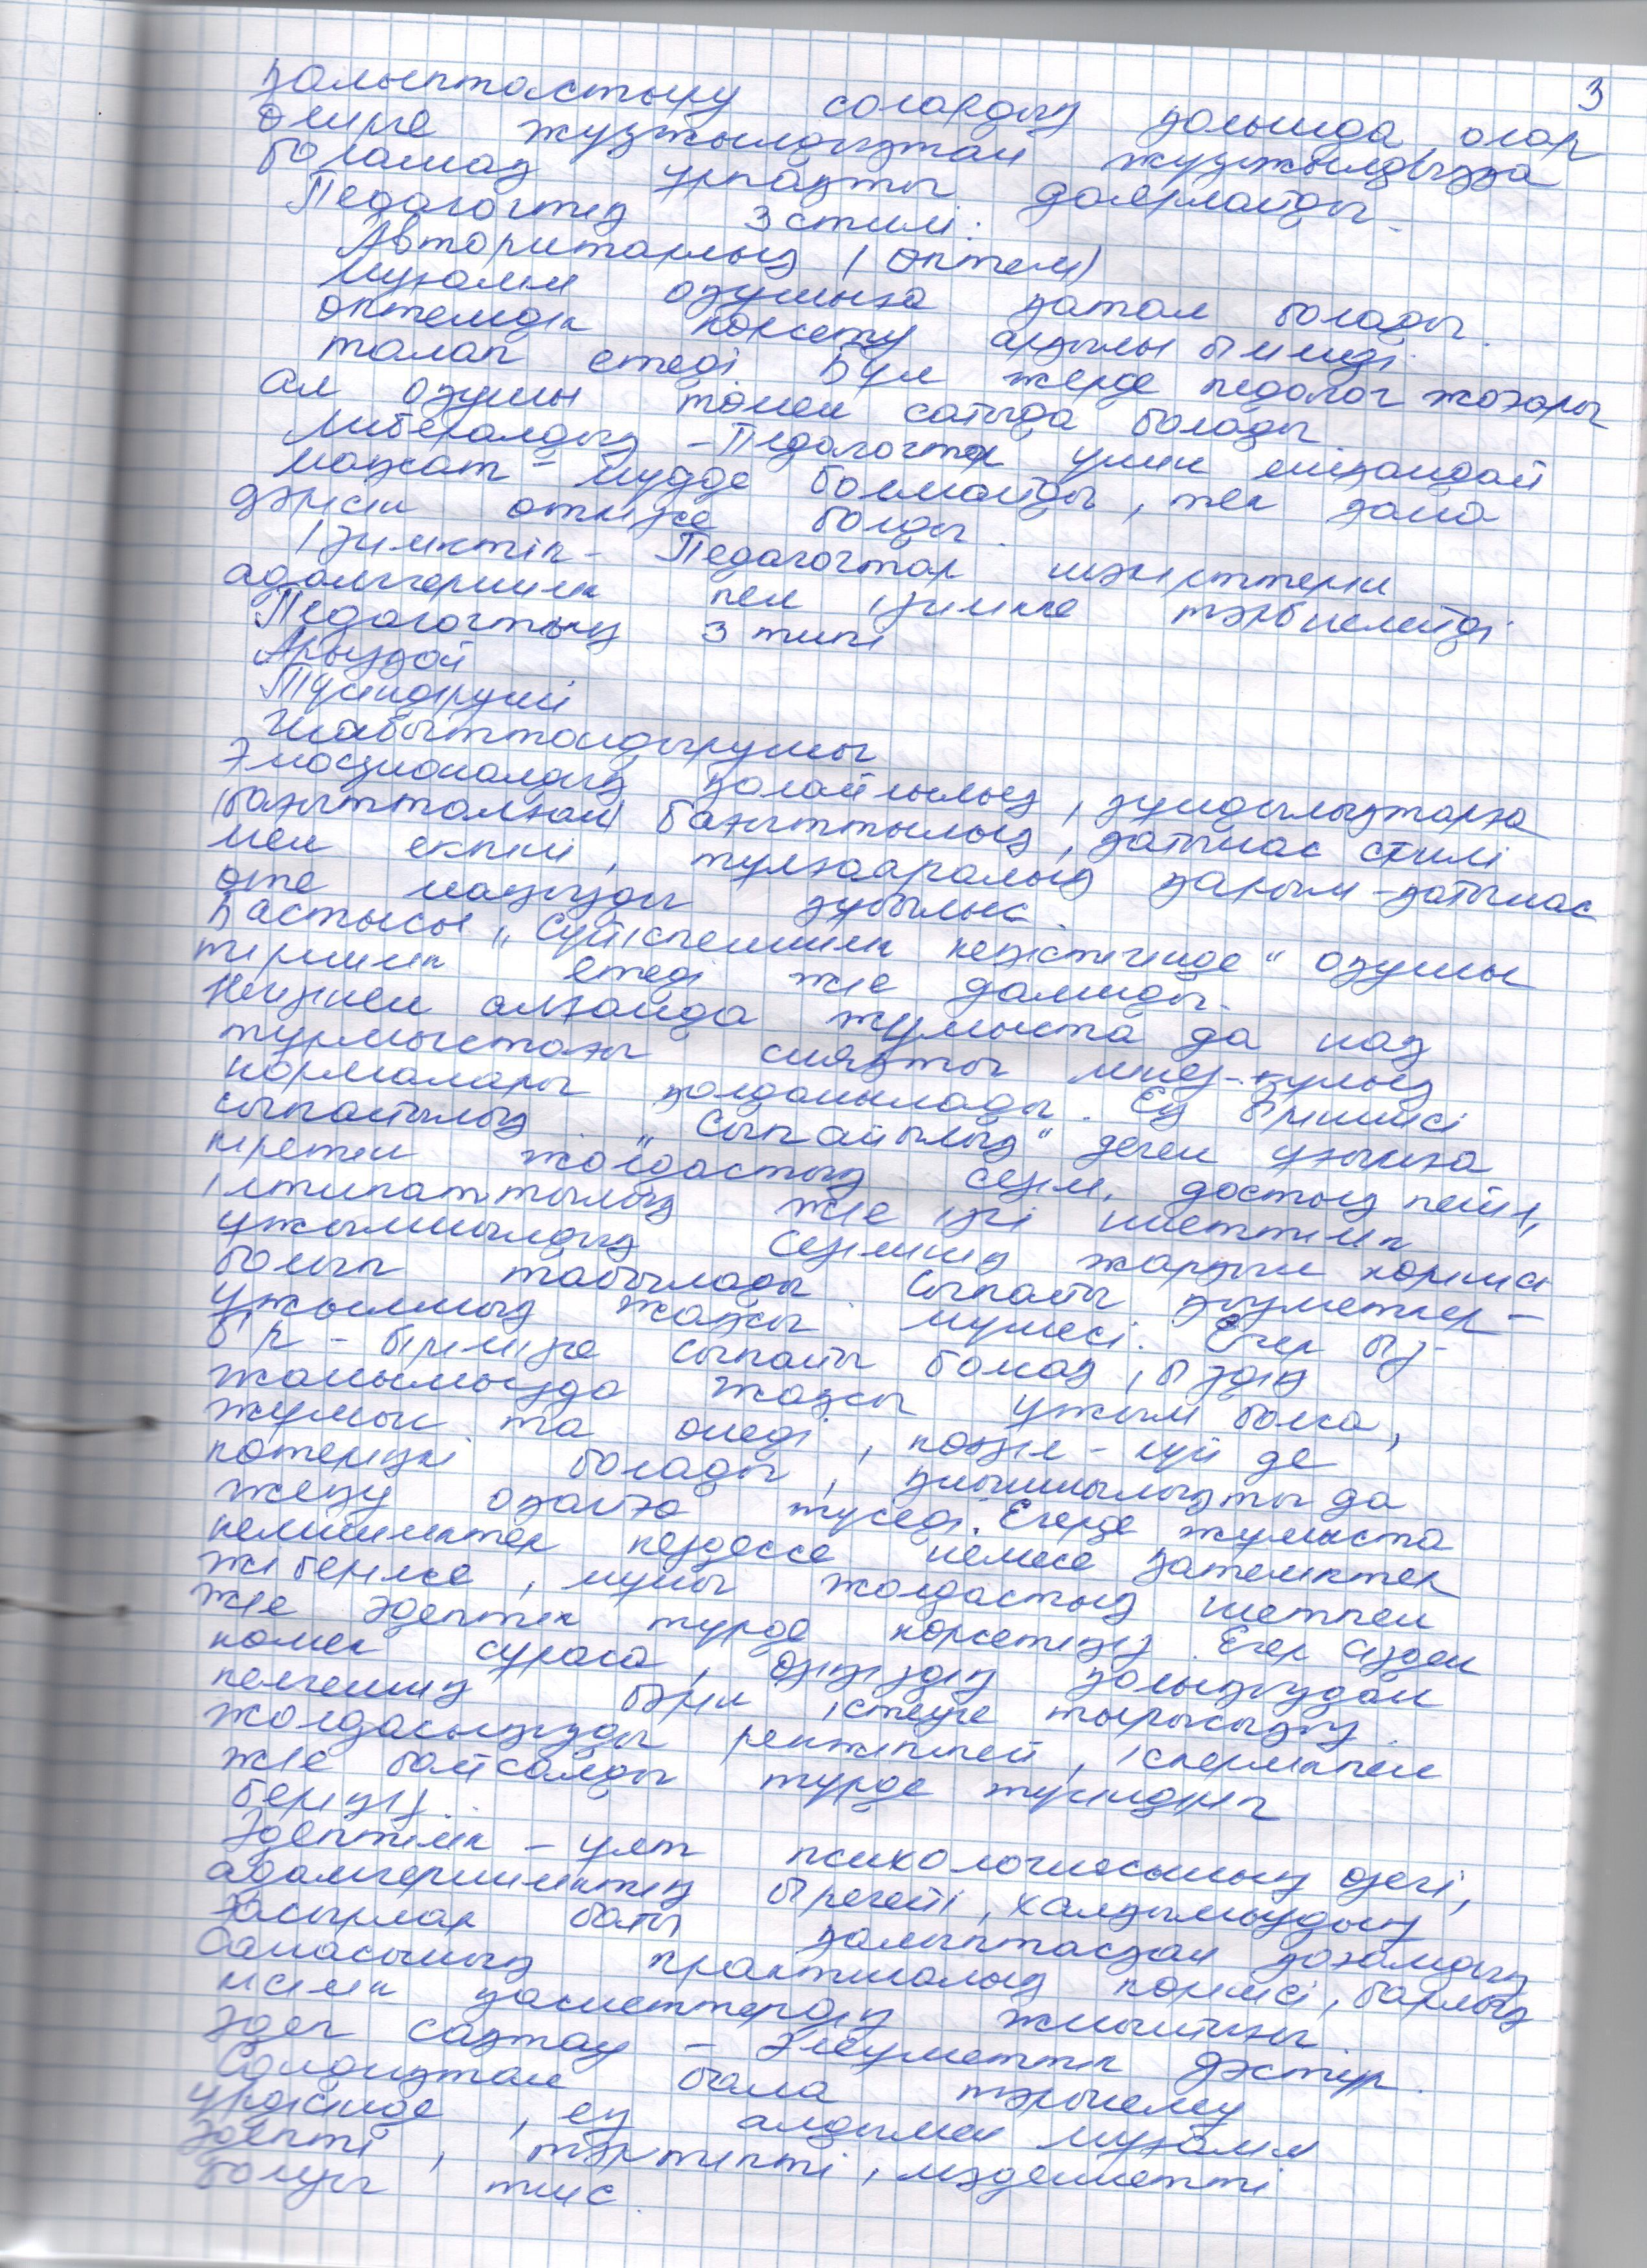 3
қалыптастыру солардың қолында олар
өмірге жүзжылдықтан жүзжылдыққа
болашақ ұрпақты даярлайды.
Педагогтің 3 стилі:
Авторитарлық (өктем)
Мұғалім оқушыға қатал болады.
өктемдік көрсету арқылы білімді
талап етеді Бұл жерде педагог жоғары
ал оқушы төмен сатыда болады.
Либералдық – Педагогтар үшін ешқандай
мақсат – мүдде болмайды, тек қана
дәрісін өткізсе болды.
Ізгіліктік – Педагогтар шәкірттерін
адамгершілік пен ізгілікке тәрбиелейді
Педагогтың 3 типі
Арқындай
Түсіндіруші
Шабыттандырушы
Эмоционалдық қолайлылық, құндылықтарға
(бағытталған) бағыттылық, қатынас стилі
мен екпіні, тұлғааралық қарым-қатынас
өте маңызды құбылыс
Бастысы „Сүйіспеншілік кеңістігінде" оқушы
тіршілік етеді және дамиды.
Негізінен алғанда жұмыста да нақ
тұрмыстағы сияқты мінез-құлық
нормалары қолданылады. Ең бірінші
сыпайылық. „Сыпайылық" деген ұғымға
кіретін жолдастық сезім, достық пейіл,
ілтипаттылық және ізгі ниеттілік
ұжымшылдық сезімінің жарқын көрінісі
болып табылады. Сыпайы қызметкер –
ұжымның жақсы мүшесі. Егер біз
бір – бірімізге сыпайы болсақ, біздің
жанымызда жақсы ұжым болса,
жұмыс та өнеді, көңіл – күй де
көтеріңкі болады, қиыншылықты да
жеңу оңайға түседі. Егерде жұмыста
келіспеушіліктер кездессе немесе қателіктер
жіберілсе, мұны жолдастық ниетпен
және әдептік түрде көрсетіңіз. Егер сізден
көмек сұраса, өзіңіздің қолыңыздан
келгеннің бәрін істеуге тырысыңыз
жолдасыңызды ренжітпей, іскерлікпен
және байсалды түрде түсіндіріп
беріңіз.
Әдептілік – ұлт психологиясының өзегі,
адамгершіліктің бірегейі, халқымыздың
ғасырлар бойы қалыптасқан қоғамдық
санасының практикалық көрінісі, барлық
кісілік қасиеттердің жиынтығы
Әдеп сақтау – Әлеуметтік дәстүр.
Сондықтан бала тәрбиелеу
үрдісінде, ең алдымен мұғалім
әдепті, тәртіпті, мәдениетті
болуы тиіс.